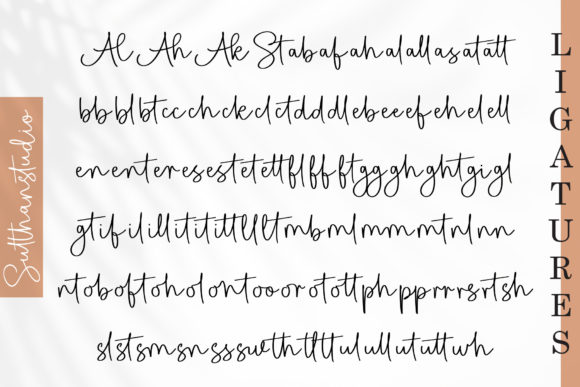 Al Ah Ak St ab af ah al all as at att
bb bl bt cc ch ck cl ct dd dl eb ee ef eh el ell
en ent er es est et ett fl ff ft gg gh ght gi gl
gt if il ill it it itt ll lt mb ml mm mt nl nn
nt ob of t oh ol on t oo or ot ott ph pp rr rs rt sh
sl st sm sn ss sw th tl tt ul ull ut utt wh
Sutthanstudio
LIGATURES